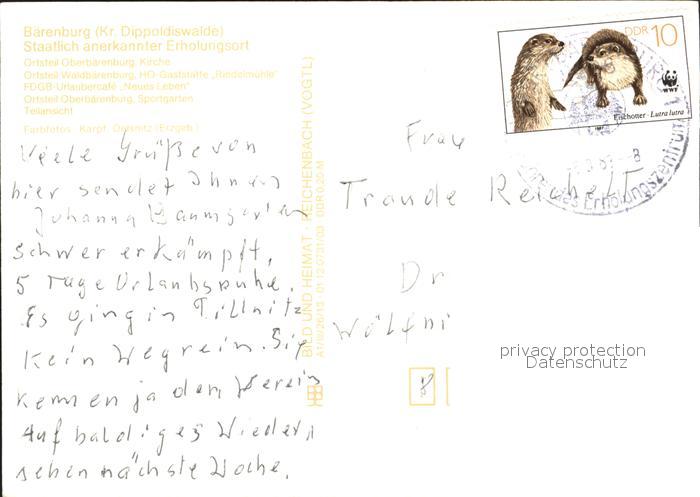 Bärenburg (Kr. Dippoldiswalde)
Staatlich anerkannter Erholungsort
Ortsteil Oberbärenburg, Kirche
Ortsteil Waldbärenburg, HO-Gaststätte „Riedelmühle"
FDGB-Urlaubercafé „Neues Leben"
Ortsteil Oberbärenburg, Sportgarten
Teilansicht
Farbfotos: Karpf, Oelsnitz (Erzgeb.)
Viele Grüße von
hier sendet Ihnen
Johanna Baumgarten
schwer erkämpft,
5 Tage Urlaubsruhe.
Es ging in Pillnitz
kein Weg rein. Sie
kennen ja den Verein
Auf baldiges Wieder
sehen nächste Woche.
BILD UND HEIMAT · REICHENBACH (VOGTL)
DDR 0,20 M
DDR 10
WWF
Fischotter - Lutra lutra
Erholungszentrum
Frau
Traude Reichelt
Dr
Wölfni
privacy protection
Datenschutz